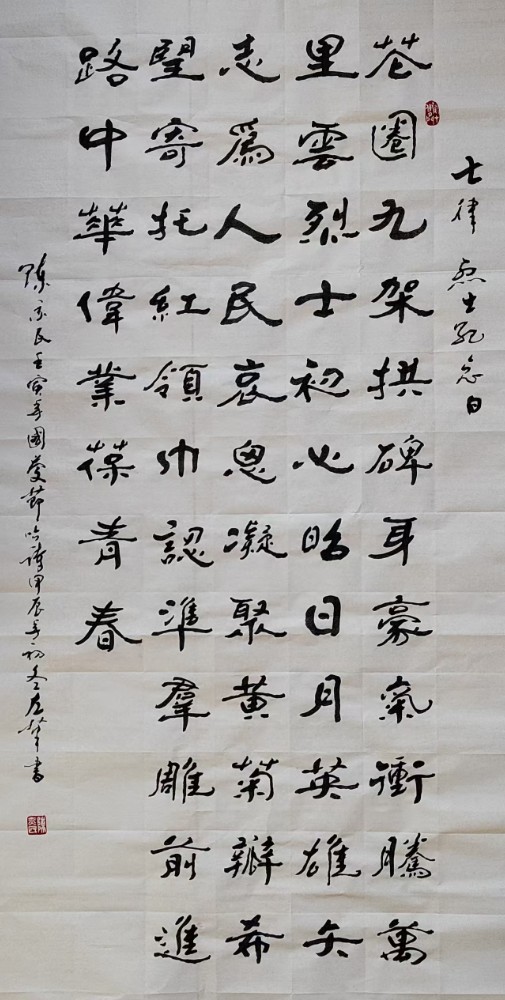 七律 烈士紀念日
花圈九架拱碑身豪氣衝騰萬
里雲烈士初心昭日月英雄矢
志爲人民哀思凝聚黄菊瓣希
望寄托紅領巾認準群雕前進
路中華偉業葆青春
陳家民壬寅年國慶節吟詩甲辰年初冬左筆書